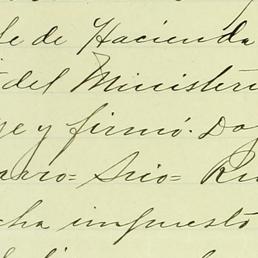 de Hacienda
del Ministeri
e y firmó. Do
arro= Srio= Ru
cha impuesto